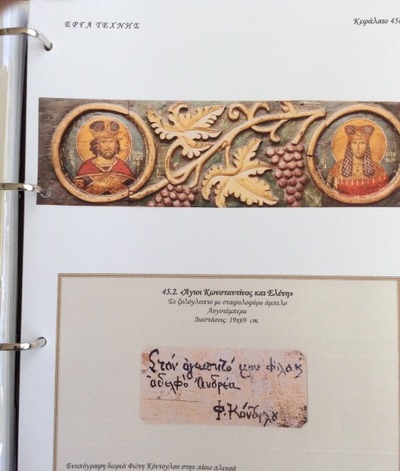 ΕΡΓΑ ΤΕΧΝΗΣ
Κεφάλαιο 45
45.2. «Άγιοι Κωνσταντίνος και Ελένη»
Σε ξυλόγλυπτο με σταφυλοφόρο άμπελο
Αυγοτέμπερα
Διαστάσεις: 19x69 cm.
Στόν ἀγαπητό μου φίλο κ'
ἀδελφό Ἀνδρέα
Φ. Κόντογλου
Ενυπόγραφη δωρεά Φώτη Κόντογλου στην πίσω πλευρά